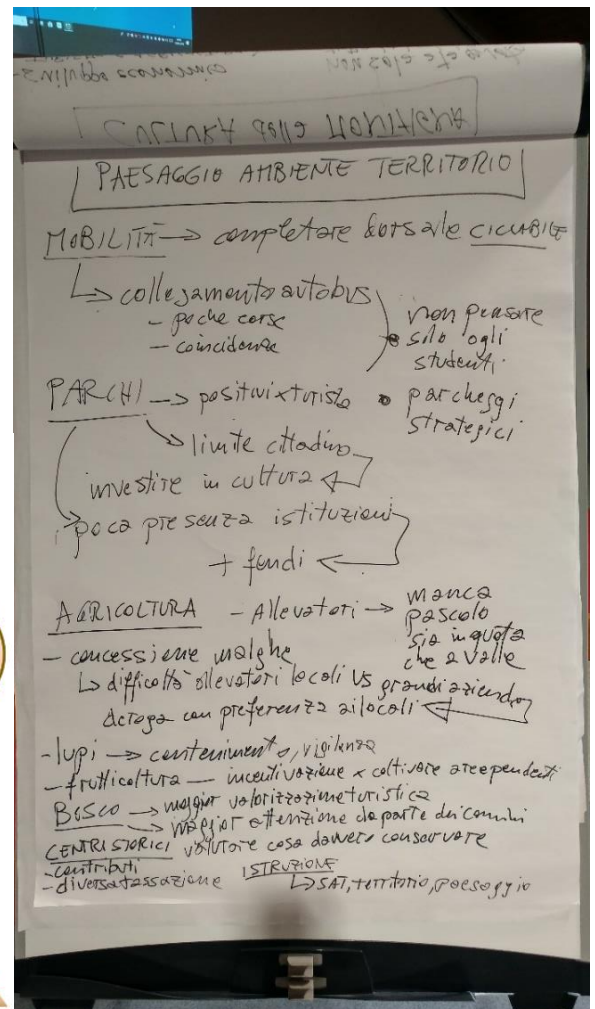 - sviluppo economico
non solo
CULTURA della MONTAGNA
PAESAGGIO AMBIENTE TERRITORIO
MOBILITÀ → completare dorsale CICLABILE
↳ collegamento autobus
- poche corse
- coincidenze
• non pensare
solo agli
studenti
PARCHI → positivi x turisti
• parcheggi
strategici
↘ limite cittadino
investire in cultura ↵
poca presenza istituzioni
+ fondi ←
AGRICOLTURA - Allevatori → manca
pascolo
sia in quota
che a valle
- concessione malghe
↳ difficoltà allevatori locali vs grandi aziende
deroga con preferenza ai locali ←
- lupi → contenimento, vigilanza
- frutticoltura — incentivazione x coltivare aree pendenti
BOSCO → maggior valorizzazione turistica
→ maggior attenzione da parte dei comuni
CENTRI STORICI valutare cosa davvero conservare
- contributi
- diversa tassazione
ISTRUZIONE
↳ SAT, territorio, paesaggio